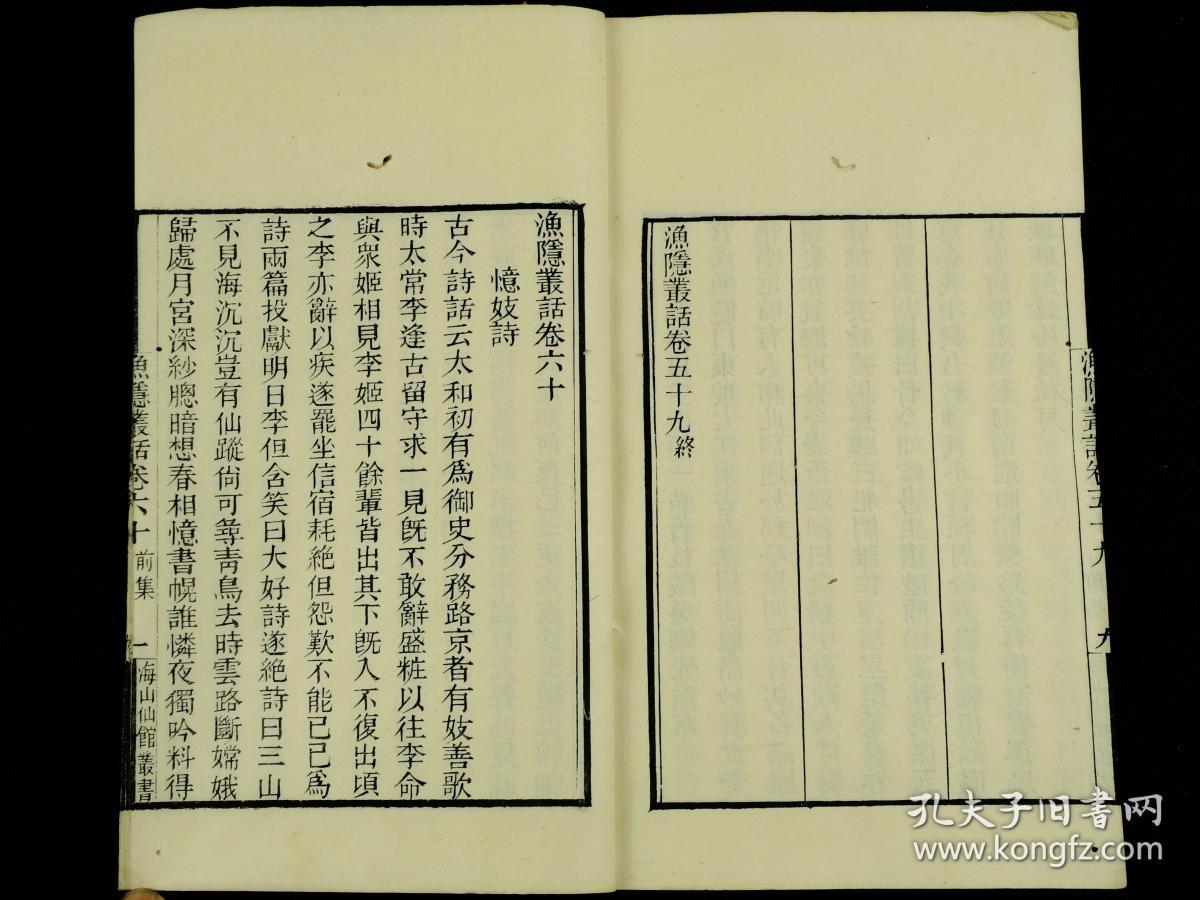 漁隱叢話卷五十九 九
漁隱叢話卷五十九終
漁隱叢話卷六十
憶妓詩
古今詩話云太和初有爲御史分務路京者有妓善歌
時太常李逢古留守求一見旣不敢辭盛粧以往李命
與衆姬相見李姬四十餘輩皆出其下旣入不復出頃
之李亦辭以疾遂罷坐信宿耗絶但怨歎不能已已爲
詩兩篇投獻明日李但含笑曰大好詩遂絶詩曰三山
不見海沉沉豈有仙蹤尙可尋靑鳥去時雲路斷嫦娥
歸處月宮深紗牕暗想春相憶書幌誰憐夜獨吟料得
漁隱叢話卷六十 前集 一 海山仙館叢書
孔夫子旧书网
www.kongfz.com